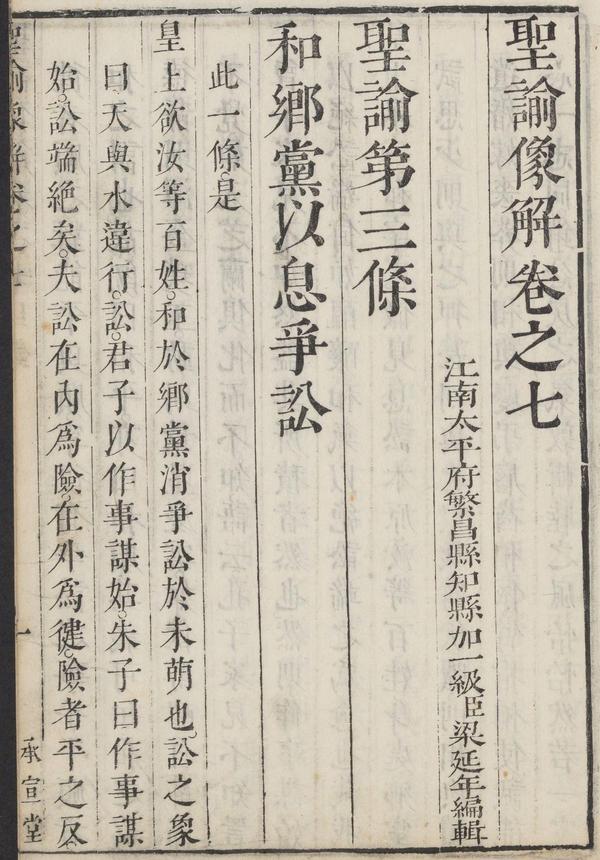 聖諭像解卷之七
江南太平府繁昌縣知縣加一級臣梁延年編輯
聖諭第三條
和鄉黨以息爭訟
此一條。是
皇上欲汝等百姓。和於鄉黨消爭訟於未萌也。訟之象
曰天與水違行。訟。君子以作事謀始。朱子曰作事謀
始。訟端絕矣。夫訟在內爲險。在外爲健。險者平之反。
聖諭像解卷之七
一
承宣堂